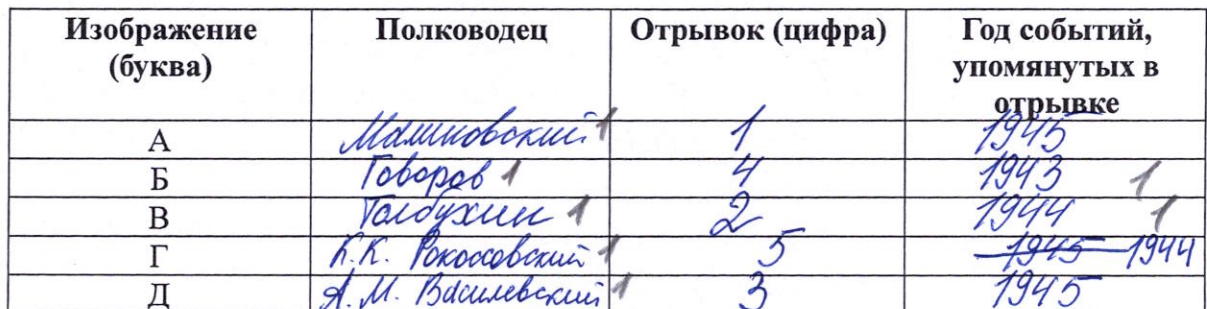 Изображение (буква) Полководец Отрывок (цифра) Год событий, упомянутых в отрывке
А Малиновский 1 1 1945
Б Говоров 1 4 1943 1
В Толбухин 1 2 1944 1
Г К.К. Рокоссовский 1 5 1945 1944
Д А.М. Василевский 1 3 1945